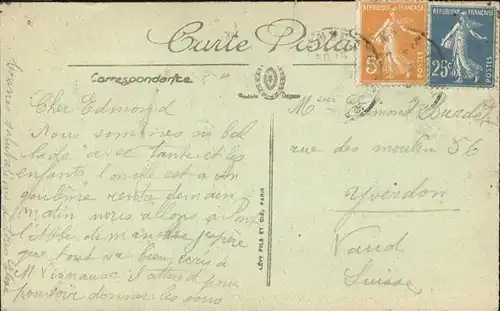 Carte Postale
Correspondance
RÉPUBLIQUE FRANÇAISE
5c
POSTES
RÉPUBLIQUE FRANÇAISE
25c
POSTES
Cher Edmond
Nous sommes
lade avec Tante et les
enfants l'oncle est a An
goulême rentre demain
matin nous allons a Pont
l'Abbé demande j'espère
que tout va bien
M Vignaux j'attend pour
pouvoir donner les sous
LÉVY FILS ET CIE, PARIS
rue des moulin 56
Yverdon
Vaud
Suisse